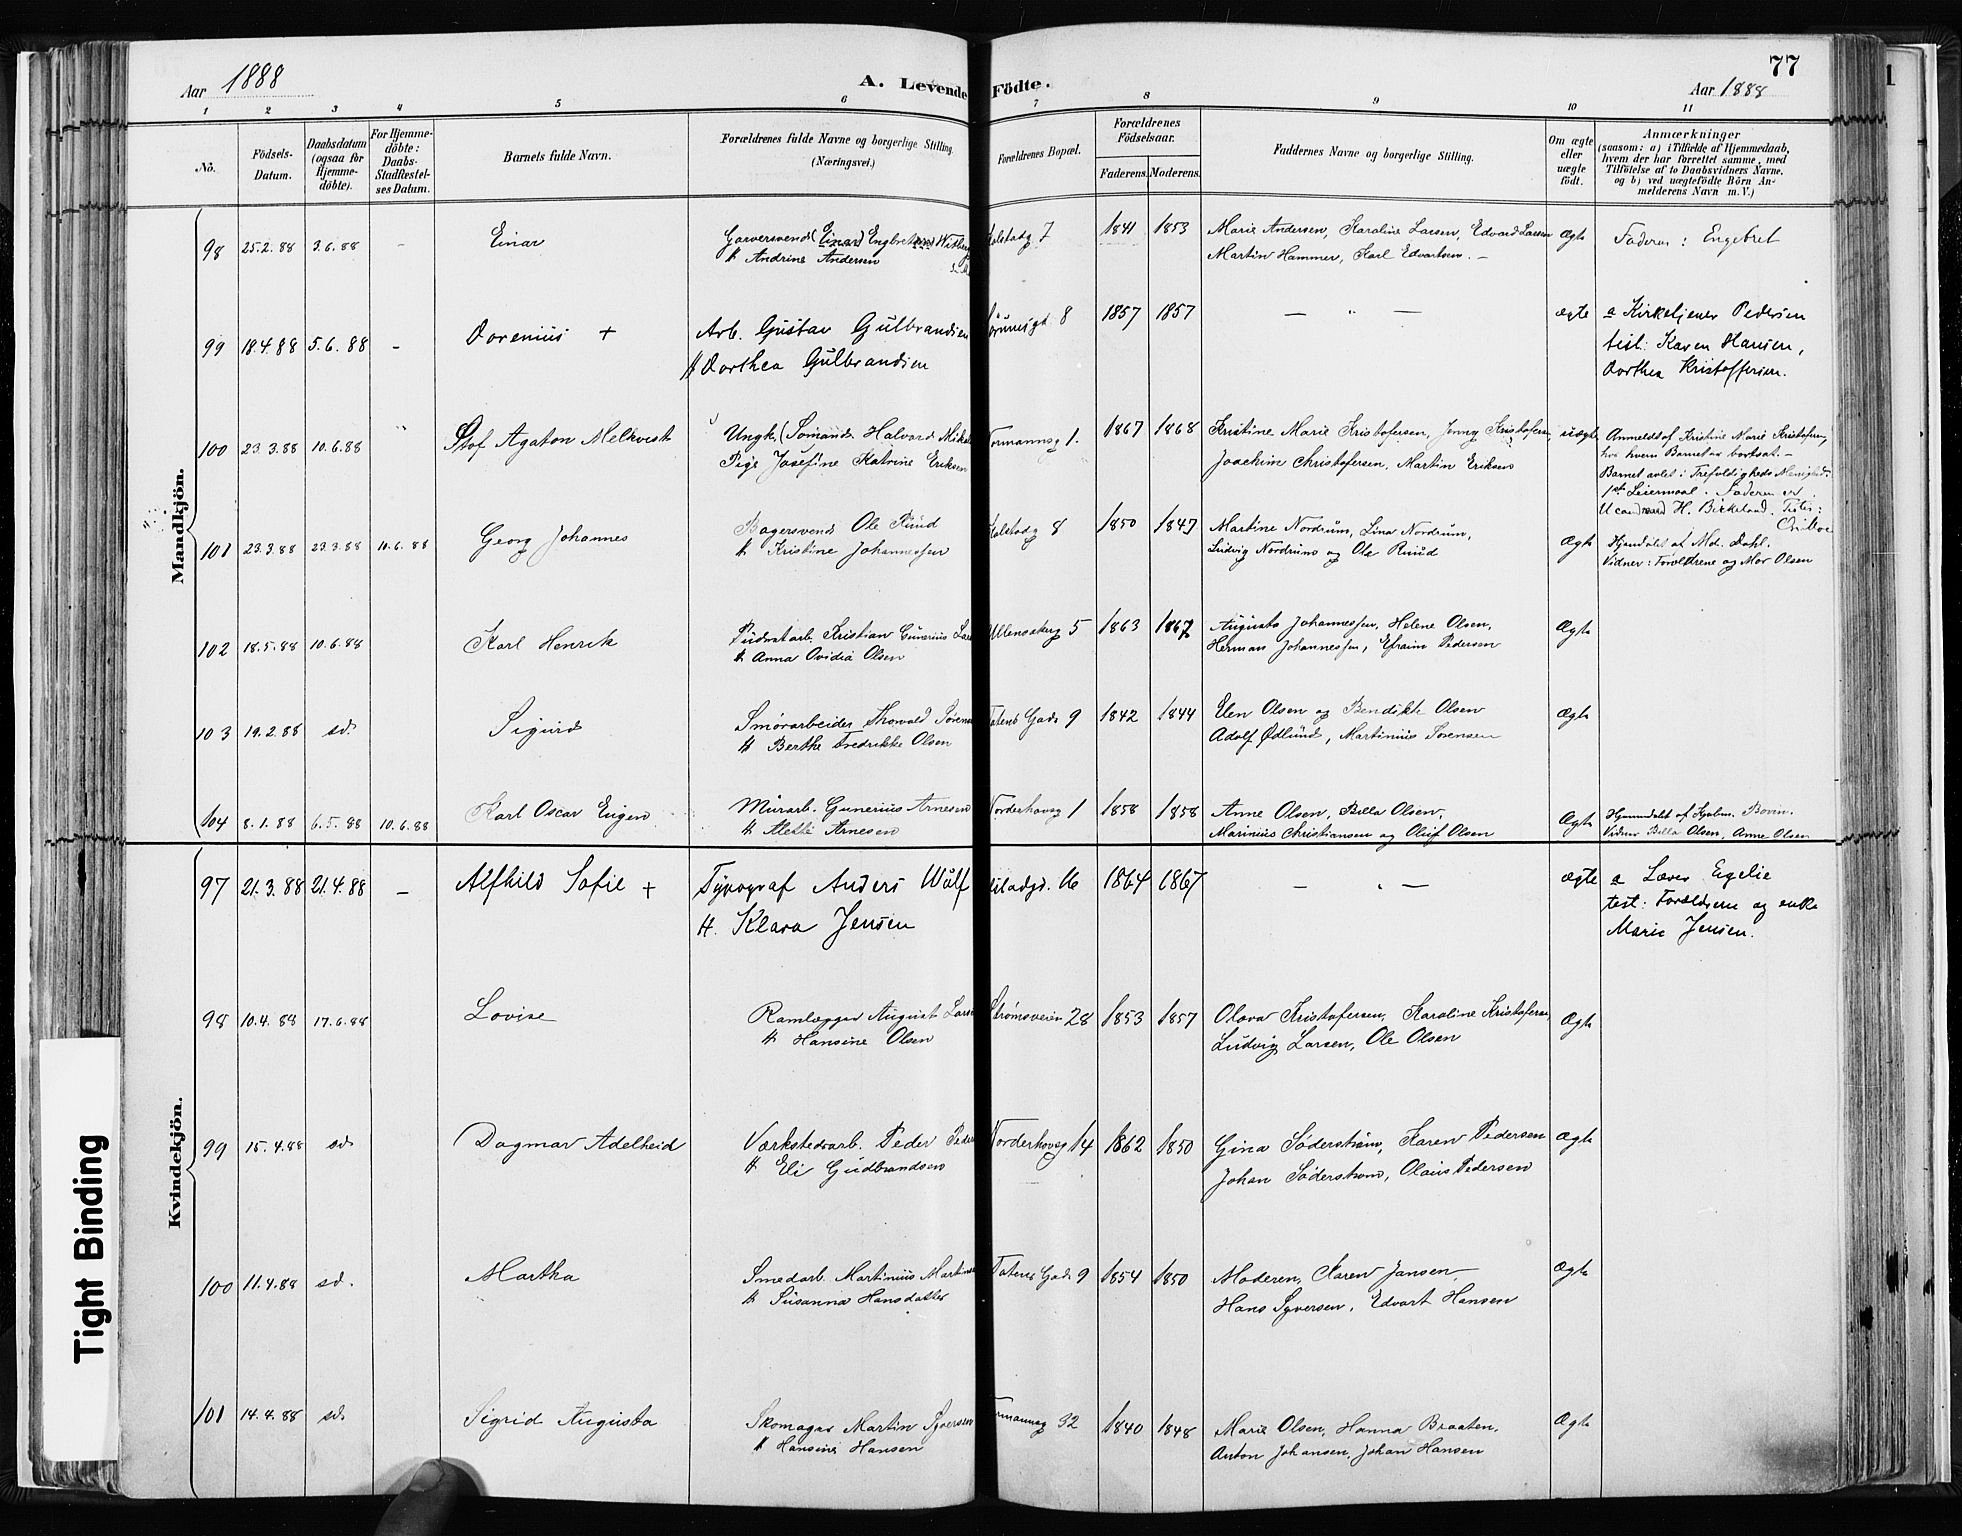 77
Aar 1888
A. Levende Födte.
Aar 1888
1 2 3 4 5 6 7 8 9 10 11
No.
Födsels-Datum.
Daabsdatum (ogsaa for Hjemme-döbte).
For Hjemme-döbte: Daabs-Stadfæstel-ses Datum.
Barnets fulde Navn.
Forældrenes fulde Navne og borgerlige Stilling. (Næringsvei.)
Forældrenes Bopæl.
Forældrenes Födselsaar.
Faderens. Moderens.
Faddernes Navne og borgerlige Stilling.
Om ægte eller uægte födt.
Anmærkninger
(saasom: a) i Tilfælde af Hjemmedaab,
hvem der har forrettet samme, med
Tilföielse af to Daabsvidners Navne,
og b) ved uægtefödte Börn An-
melderens Navn m. V.)
Mandkjön.
98 25.2.88 3.6.88 - Einar Garversvend (Einar) Engbret 7 1841 1853 Marie Andersen, Karoline Larsen, Edvard Larsen Ægte Faderen: Engebret
H Andrine Andersen Martin Hammer, Karl Edvartsen. -
99 18.4.88 5.6.88 - Dorenius + Arb. Gustav Gulbrandsen 8 1857 1857 — " — ægte a Kirketjener Pedersen
H Dorthea Gulbrandsen test: Karen Hansen,
Dorthea Kristoffersen.
100 23.3.88 10.6.88 " Olof Agaton Melkvist Ungk. (Sömand) Halvard 1. 1867 1868 Kristine Marie Kristofersen, Jenny Kristofersen, uægte Anmeldt af Kristine Marie Kristofersen,
Pige Josefine Katrine Eriksen Joachim Christofersen, Martin Eriksen hos hvem Barnet er bortsat. -
Barnet avlet i Trefoldigheds Menighed.
1ste Leiermaal. Faderen er
H. Birkeland.
101 23.3.88 23.3.88 10.6.88 Georg Johannes Bagersvend Ole Ruud 8 1850 1847 Martine Nordrum, Lina Nordrum, Ægte Hjemdöbt af Md. Dahl.
H Kristine Johannessen Ludvig Nordrum og Ole Ruud Vidner: Forældrene og Mor Olsen
102 18.5.88 10.6.88 Karl Henrik Pudsetarb. Kristian Gunerius Lars Ullensakerg 5 1863 1867 Augusta Johannessen, Helene Olsen, Ægte
H Anna Ovidia Olsen Herman Johannessen, Efraim Pedersen
103 19.2.88 sd. Sigurd Smörarbeider Thorvald Sören Gade 9 1842 1844 Elen Olsen og Bendikte Olsen Ægte
H Berthe Fredrikke Olsen Adolf Ødlund, Martinius Sörensen
104 8.1.88 6.5.88 10.6.88 Karl Oscar Eugen Murarb. Gunerius Arnesen Norderhovsg 1 1858 1858 Anne Olsen, Billa Olsen, Ægte Hjemmedöbt af Bovin.
H Mette Arnesen Marinius Christiansen og Oluf Olsen Vidner Billa Olsen, Anne Olsen
Kvindekjön.
97 21.3.88 21.4.88 - Alfhild Sofie + Typograf Anders Wulf 16 1864 1867 — " — ægte a Lærer Egelie
H. Klara Jensen test: Forældrene og enke
Marie Jensen.
98 10.4.88 17.6.88 Lovise Ramlægger August Lars Strömsveien 28 1853 1857 Olava Kristofersen, Karoline Kristofersen, Ægte
H Hansine Olsen Ludvig Larsen, Ole Olsen
99 15.4.88 sd. Dagmar Adelheid Værkstedsarb. Peder Peder Norderhovsg 14 1862 1850 Gina Söderström, Karen Pedersen Ægte
H Eli Gudbrandsen Johan Söderström, Olaus Pedersen
100 11.4.88 sd. Martha Smedarb. Martinius Martins Gade 9 1854 1850 Moderen, Karen Jansen, Ægte
H Susanna Hansdatter Hans Syversen, Edvart Hansen
101 14.4.88 sd. Sigrid Augusta Skomager Martin Syversen 32 1840 1848 Marie Olsen, Hanna Braaten, Ægte
H Hansine Hansen Anton Johansen, Johan Hansen
Tight Binding